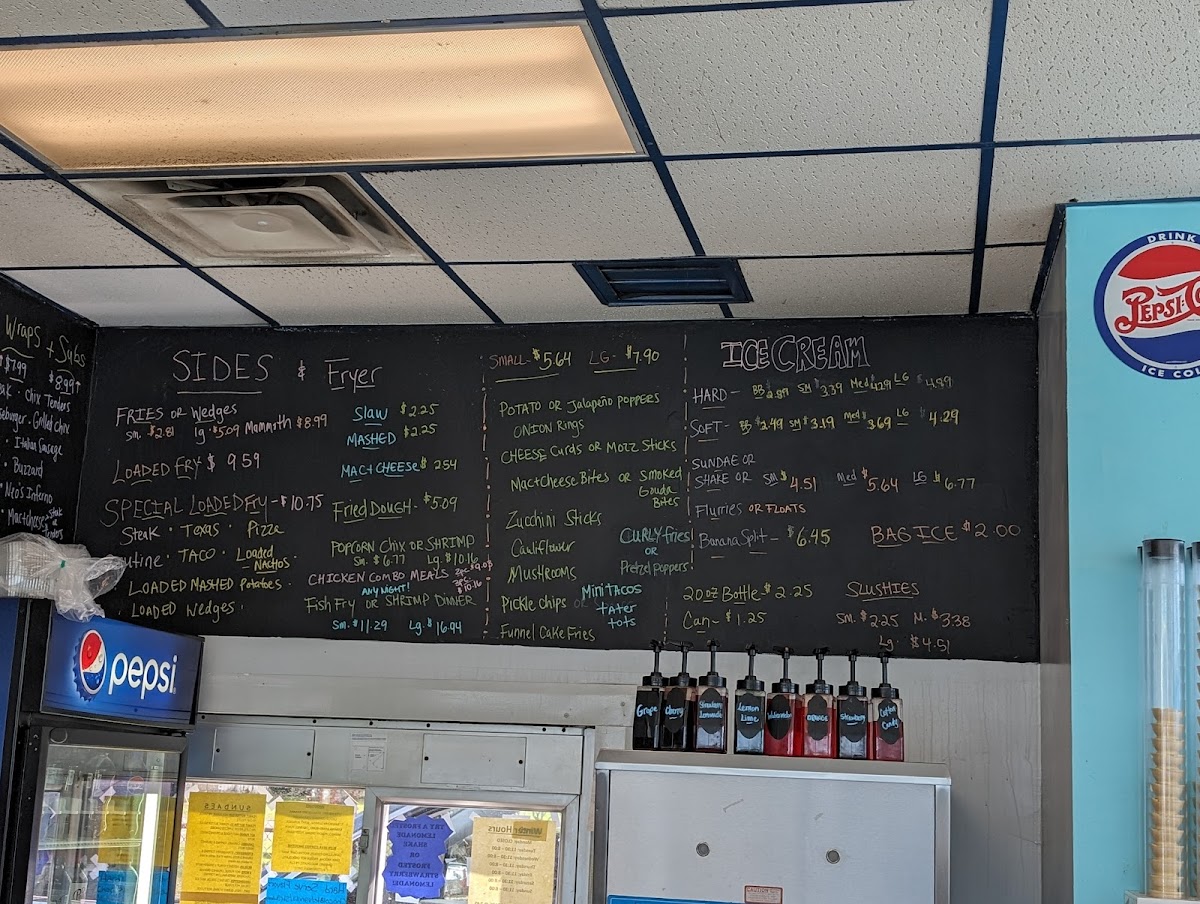 Wraps + Subs
$7.99
$8.99↑
Chix Tenders
Grilled Chix
• Italian Sausage
• Buzzard
• Neo's Inferno
• Mac+cheese
SIDES & Fryer
FRIES or Wedges
sm. $2.81 lg. $5.09 Mammoth $8.99
LOADED FRY $9.59
SPECIAL LOADED Fry - $10.75
Steak • Texas • Pizza
utine • TACO • Loaded Nachos
LOADED MASHED Potatoes •
Loaded Wedges •
Slaw $2.25
MASHED $2.25
MAC+CHEESE $2.54
Fried Dough - $5.09
POPCORN Chix or SHRIMP
Sm. $6.77 Lg. $10.16
CHICKEN COMBO MEALS
ANY NIGHT!
Fish Fry or SHRIMP DINNER
Sm. $11.29 Lg. $16.94
SMALL - $5.64 LG - $7.90
POTATO OR Jalapeño POPPERS
ONION Rings
CHEESE Curds or Mozz Sticks
Mac+Cheese Bites or Smoked
Gouda
Bites
Zucchini Sticks
Cauliflower
MUSHROOMS
Pickle chips or
Funnel Cake Fries
CURLY fries
OR
Pretzel Poppers
Mini TACOS
tater
tots
ICE CREAM
HARD - BB $2.89 SM $3.39 Med 4.29 LG $4.99
SOFT - BB $2.49 SM $3.19 Med 3.69 LG $4.29
SUNDAE OR
SHAKE OR SM $4.51 Med $5.64 LG $6.77
Flurries OR FLOATS
Banana Split - $6.45
BAG ICE $2.00
20oz Bottle - $2.25
Can - $1.25
SLUSHIES
Sm. $2.25 M. $3.38
Lg. $4.51
DRINK
PEPSI-Co
ICE COL
pepsi
Grape
Cherry
Strawberry Lemonade
Lemon Lime
Watermelon
ORANGE
Strawberry
Cotton Candy
SUNDAES
TRY A FROSTY
LEMONADE
SHAKE
OR
FROSTED
STRAWBERRY
LEMONADE!
Winter Hours